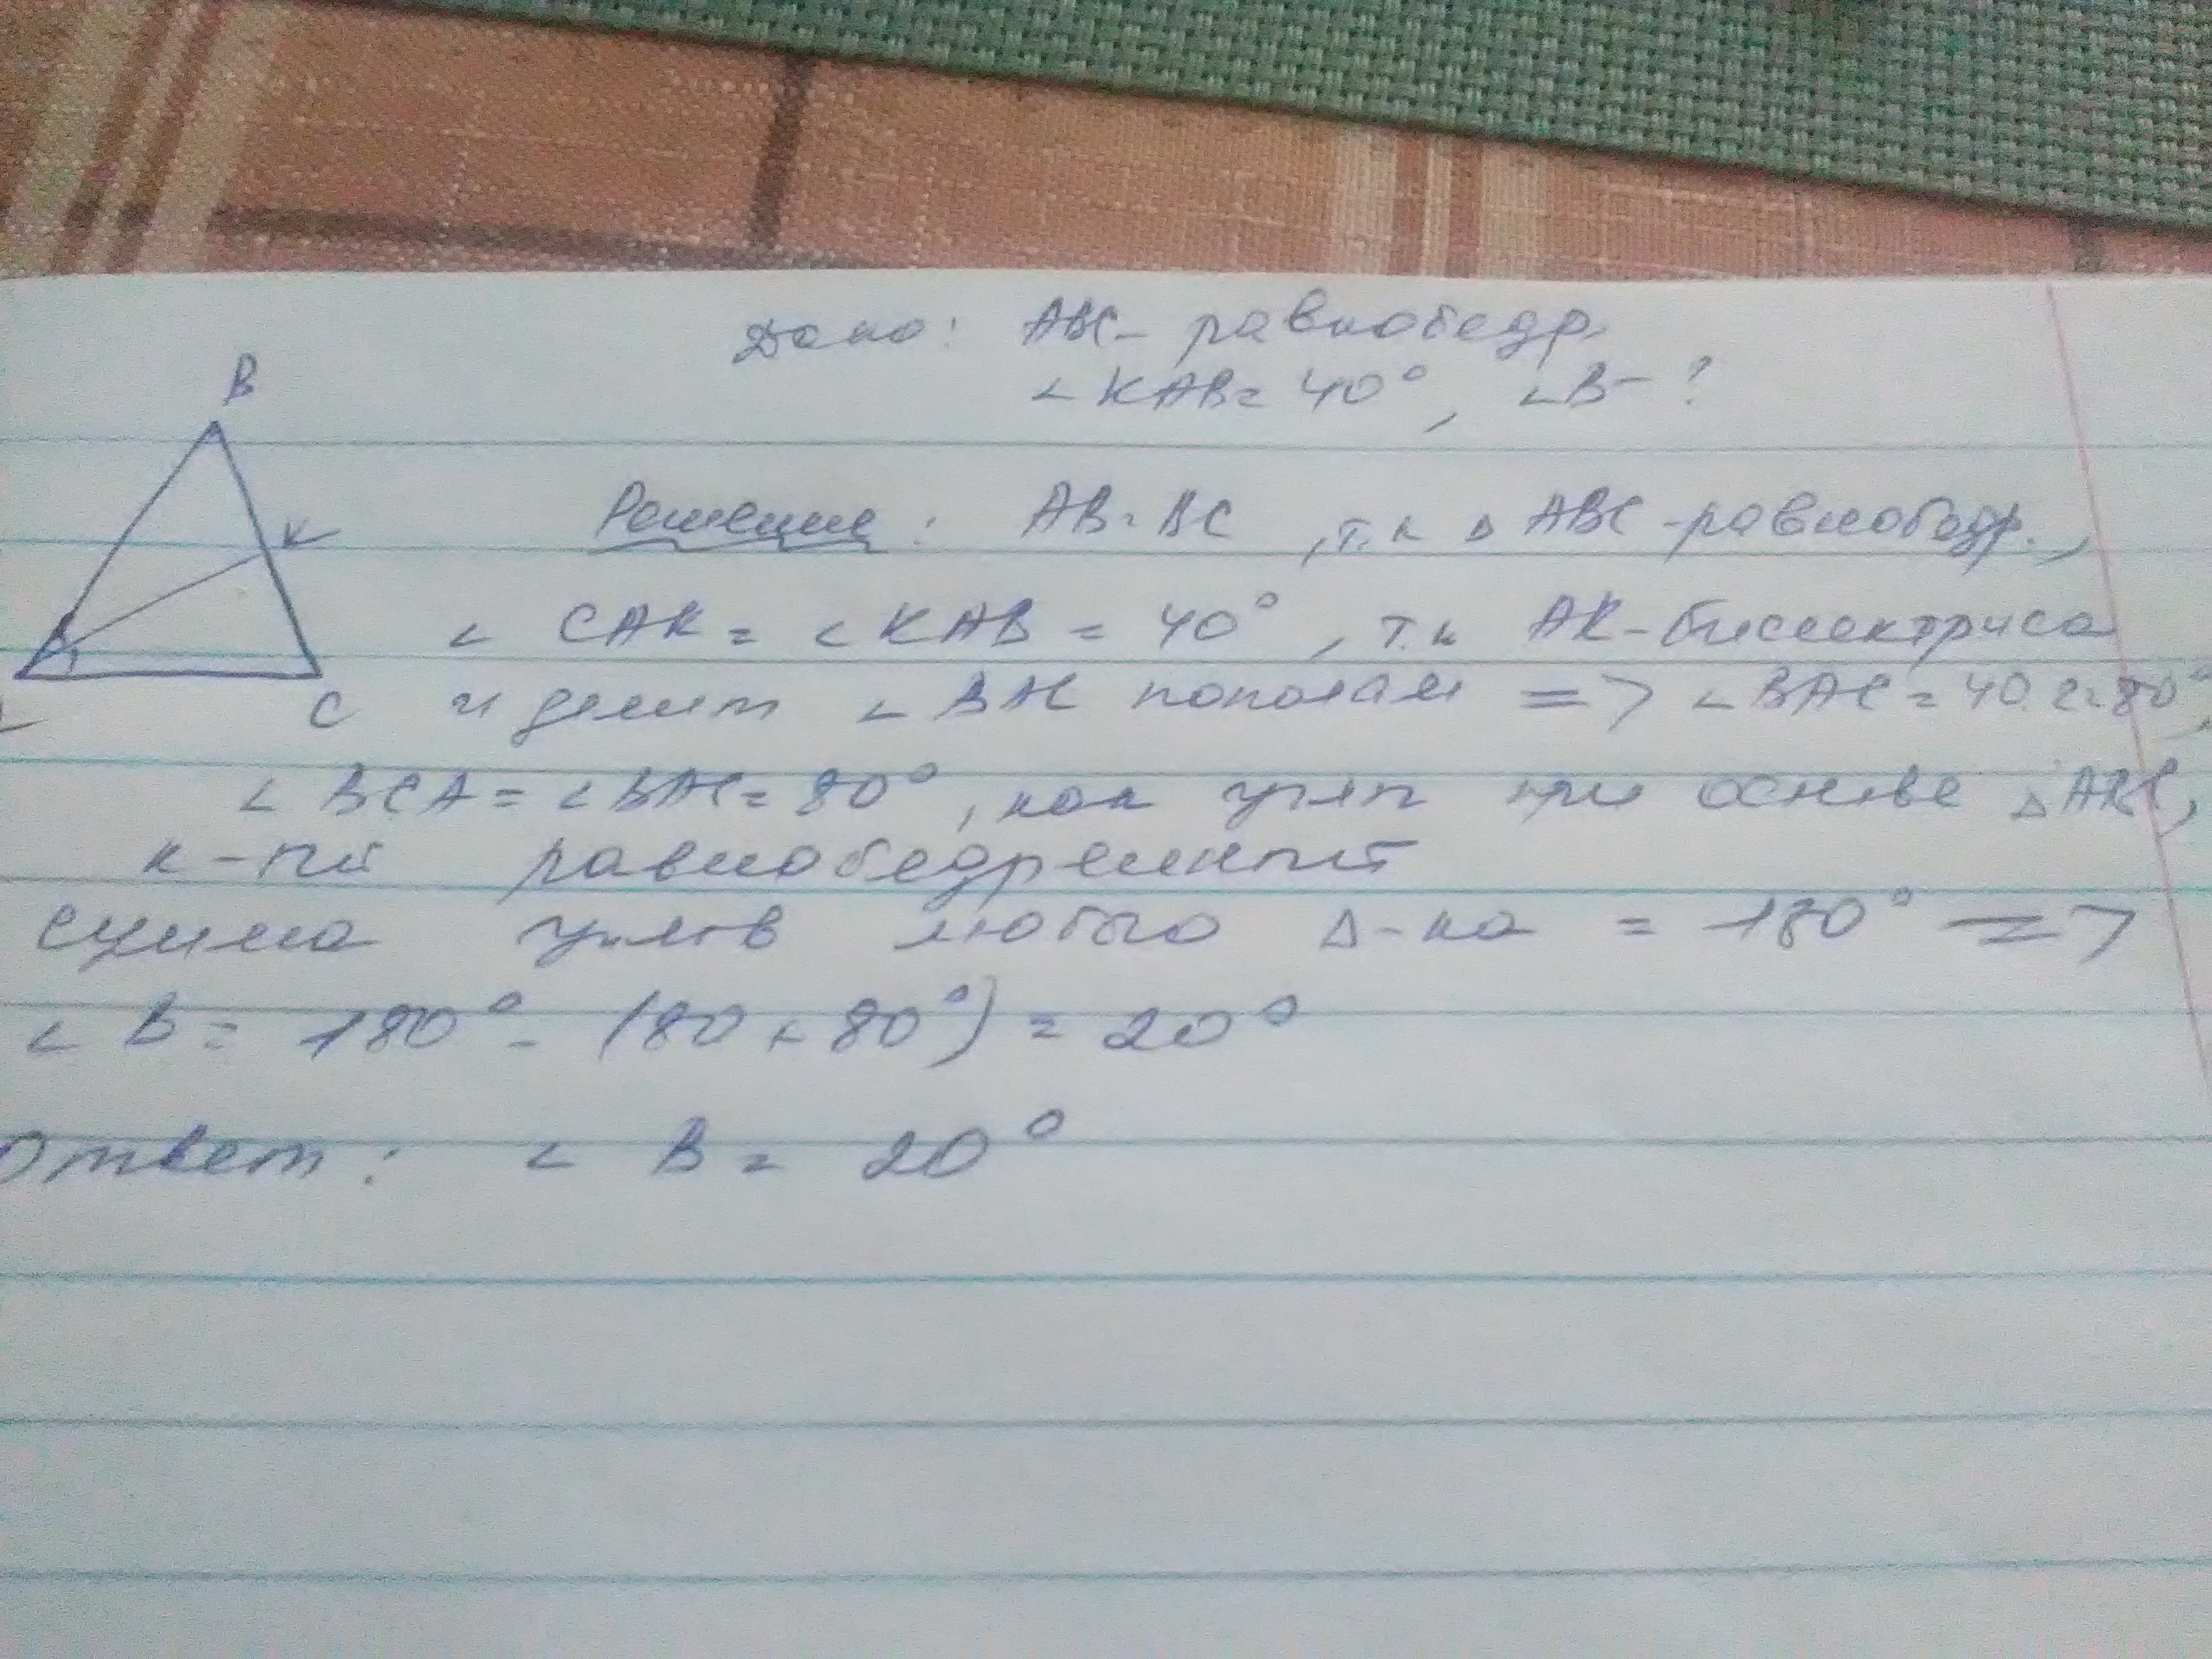 Дано: ABC- равнобедр.
∠KAB= 40°, ∠B- ?
B
K
C
Решение: AB=BC, т.к △ ABC-равнобедр.,
∠ CAK = ∠KAB = 40°, т.к AK-биссектриса
и делит ∠ BAC пополам => ∠BAC = 40·2=80°,
∠ BCA = ∠BAC= 80°, как углы при основе △ ABC,
к-рый равнобедренный
Сумма углов любого △-ка = 180° =>
∠ B = 180° - (80 + 80°) = 20°
Ответ: ∠ B = 20°